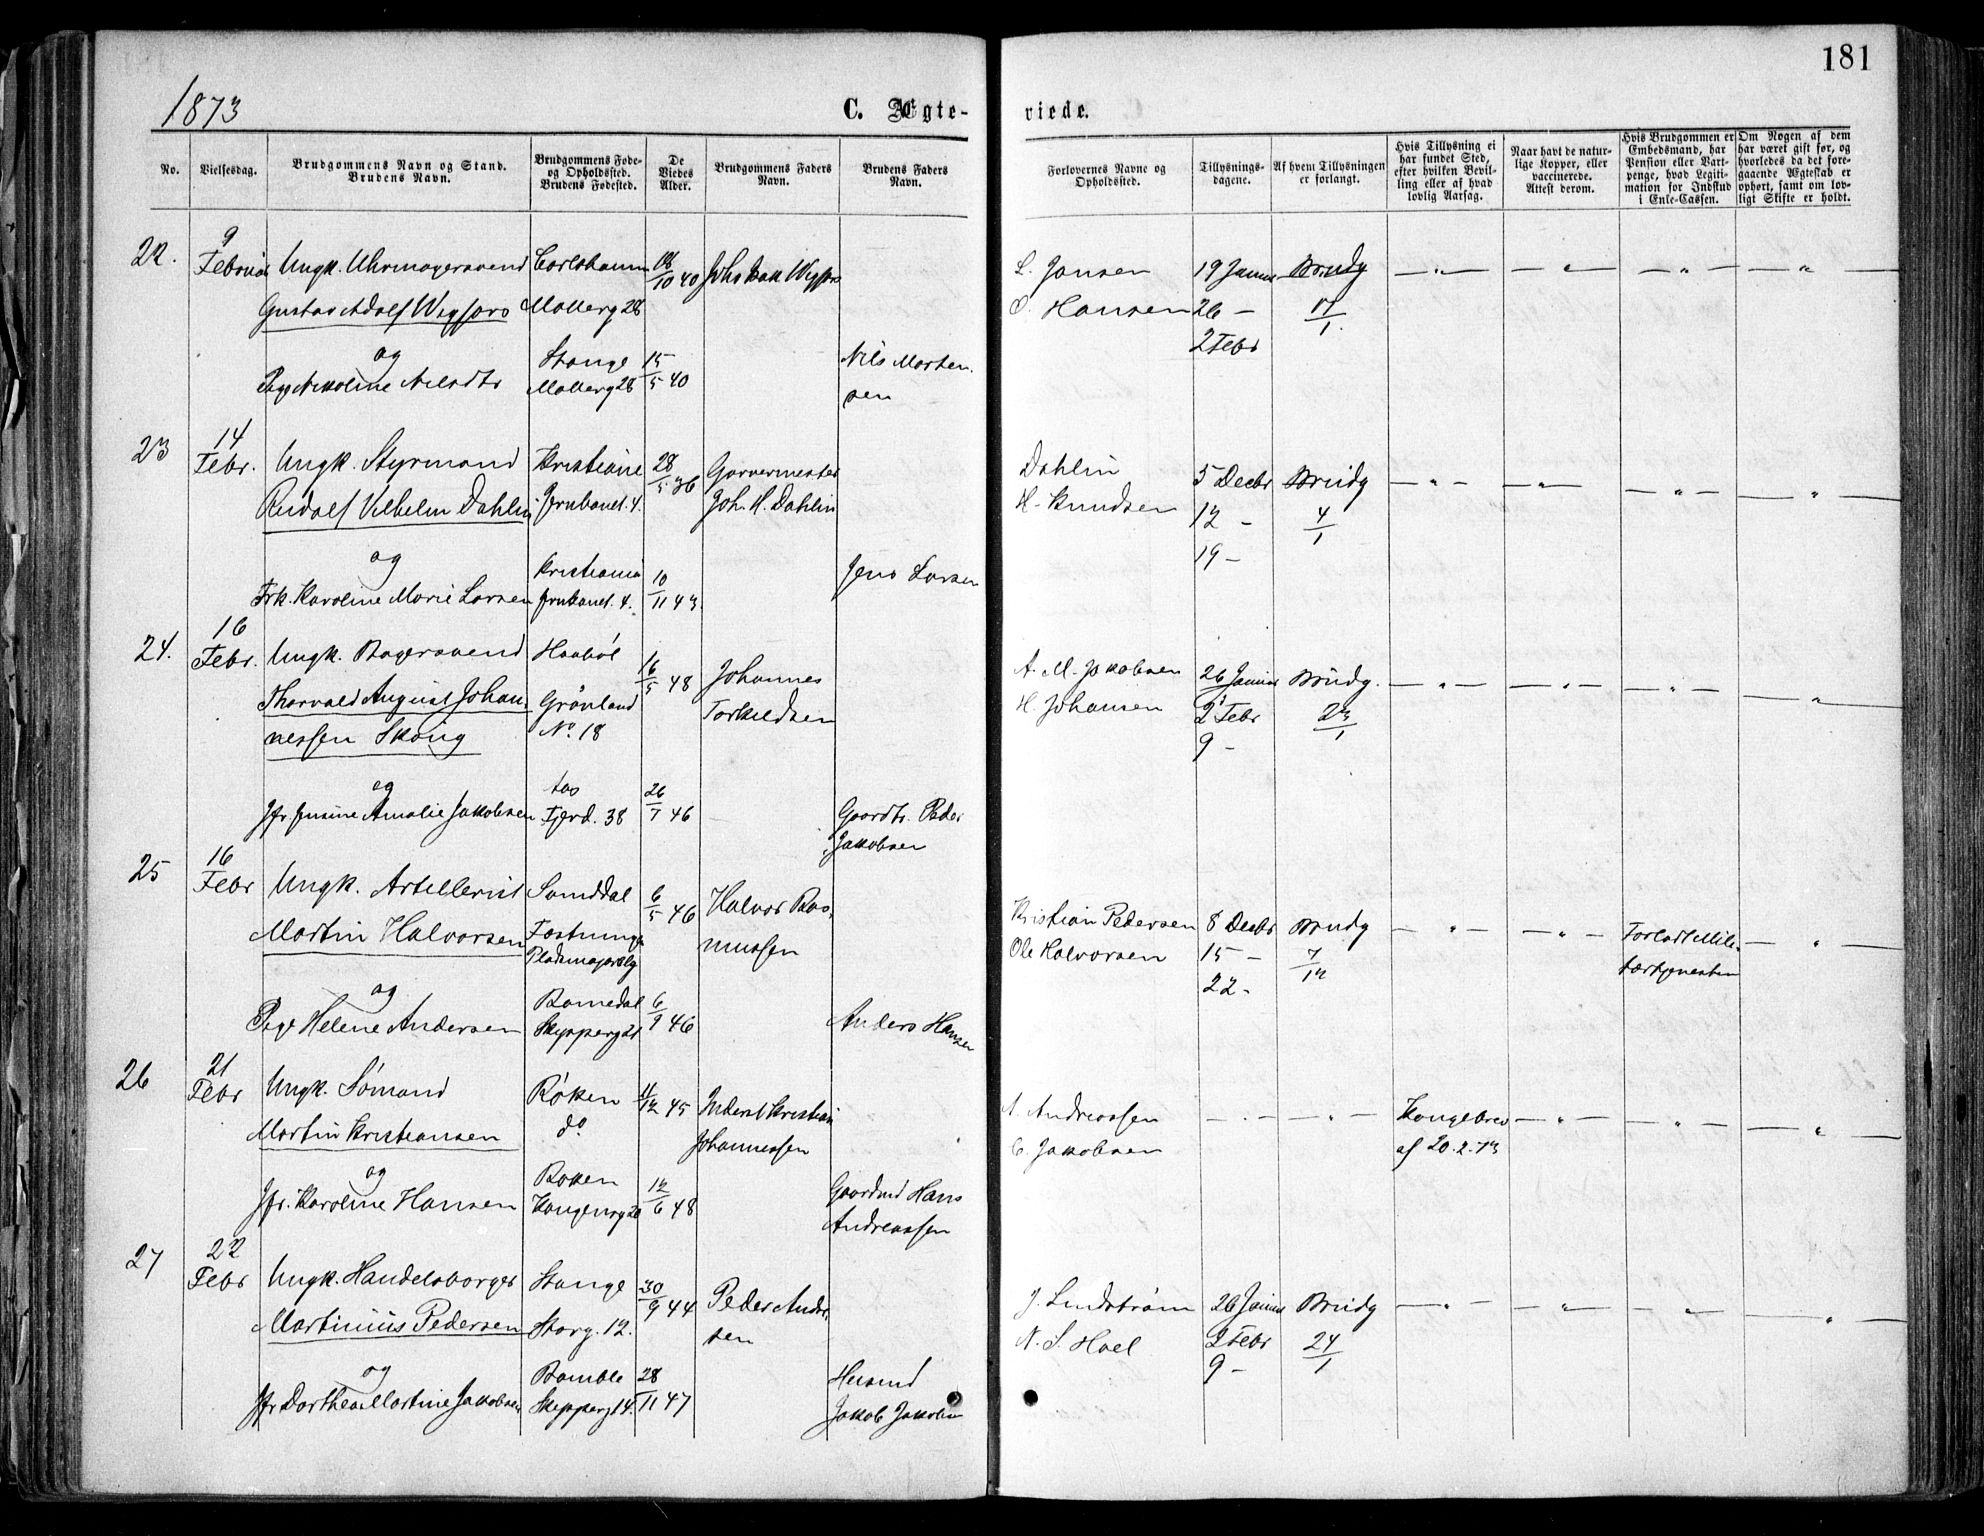 181
1873
C. Ægte-
viede.
No.
Vielsesdag.
Brudgommens Navn og Stand.
Brudens Navn.
Brudgommens Føde-
og Opholdssted.
Brudens Fødested.
De
Viedes
Alder.
Brudgommens Faders
Navn.
Brudens Faders
Navn.
Forlovernes Navne og
Opholdssted.
Tillysnings-
dagene.
Af hvem Tillysningen
er forlangt.
Hvis Tillysning ei
har fundet Sted,
efter hvilken Bevil-
ling eller af hvad
lovlig Aarsag.
Naar havt de natur-
lige Kopper, eller
vaccinerede.
Attest derom.
Hvis Brudgommen er
Embedsmand, har
Pension eller Vart-
penge, hvad Legiti-
mation for Indskud
i Enke-Cassen.
Om Nogen af dem
har været gift før, og
hvorledes da det fore-
gaaende Ægteskab er
ophørt, samt om lov-
ligt Skifte er holdt.
22.
9
Februar
Ungk. Uhrmagersvend
Gustav Adolf
og
Pige Nikoline Nilsdtr
Carlshamn
Mollerg 28
Stange
Mollerg 28
10 40
15
5 40
Nils Morten
sen
L. Jansen
O. Hansen
19 Januar
26 —
2 Febr
Brudg
17
1.
23
14
Febr.
Ungk. Styrmand
Rudolf Vilhelm Dahlin
og
Frk. Karoline Marie Larsen
Kristiania
Jrnbanet. 4.
Kristiania
Jrnbanet. 4.
28
5 36
10
11 43
Garvermester
Joh. H. Dahlin
Jens Larsen
Dahlin
H. Knudsen
5 Decbr
12 —
19 —
Brudg
4
1
24.
16
Febr.
Ungk. Bagersvend
Thorvald August Johan
nessen Skoug
og
Jfr Amalie Jakobsen
Haabøl
Grønland
No. 18
Aas
Fjerd. 38
16
5 48
26
7 46
Johannes
Torkildsen
Gaardbr. Peder
Jakobsen
A. M. Jakobsen
H. Johansen
26 Januar
2 Febr
9 —
Brudg.
23
1
25
16
Febr
Ungk. Artillerist
Martin Halvorsen
og
Pige Helene Andersen
Fæstningen
Romedal
Skipperg 21
6
5 46
6
9 46
Halvor Ras
mussen
Anders Hansen
Kristian Pedersen
Ole Halvorsen
8 Decbr
15 —
22 -
Brudg
7
12
Forladt Mili-
tærtjenesten
26
21
Febr
Ungk. Sömand
Martin Kristiansen
og
Jfr. Karoline Hansen
Røken
do
Røken
Kongensg 20
11
12 45
12
6 48
Inderst Kristian
Johannessen
Gaardmd Hans
Andreassen
A. Andreassen
C. Jakobsen
Kongebrev
af 20.2.73
27
22
Febr
Ungk. Handelsborger
Martinius Pedersen
og
Jfr Dorthea Martine Jakobsen
Stange
Storg. 12.
Bamble
Skipperg 14.
30
9 44
28
11 47
Peder Ander
sen
Husmd
Jakob Jakobsen
J. Lindstrøm
N. S. Hoel
26 Januar
2 Febr
9 —
Brudg
24
1